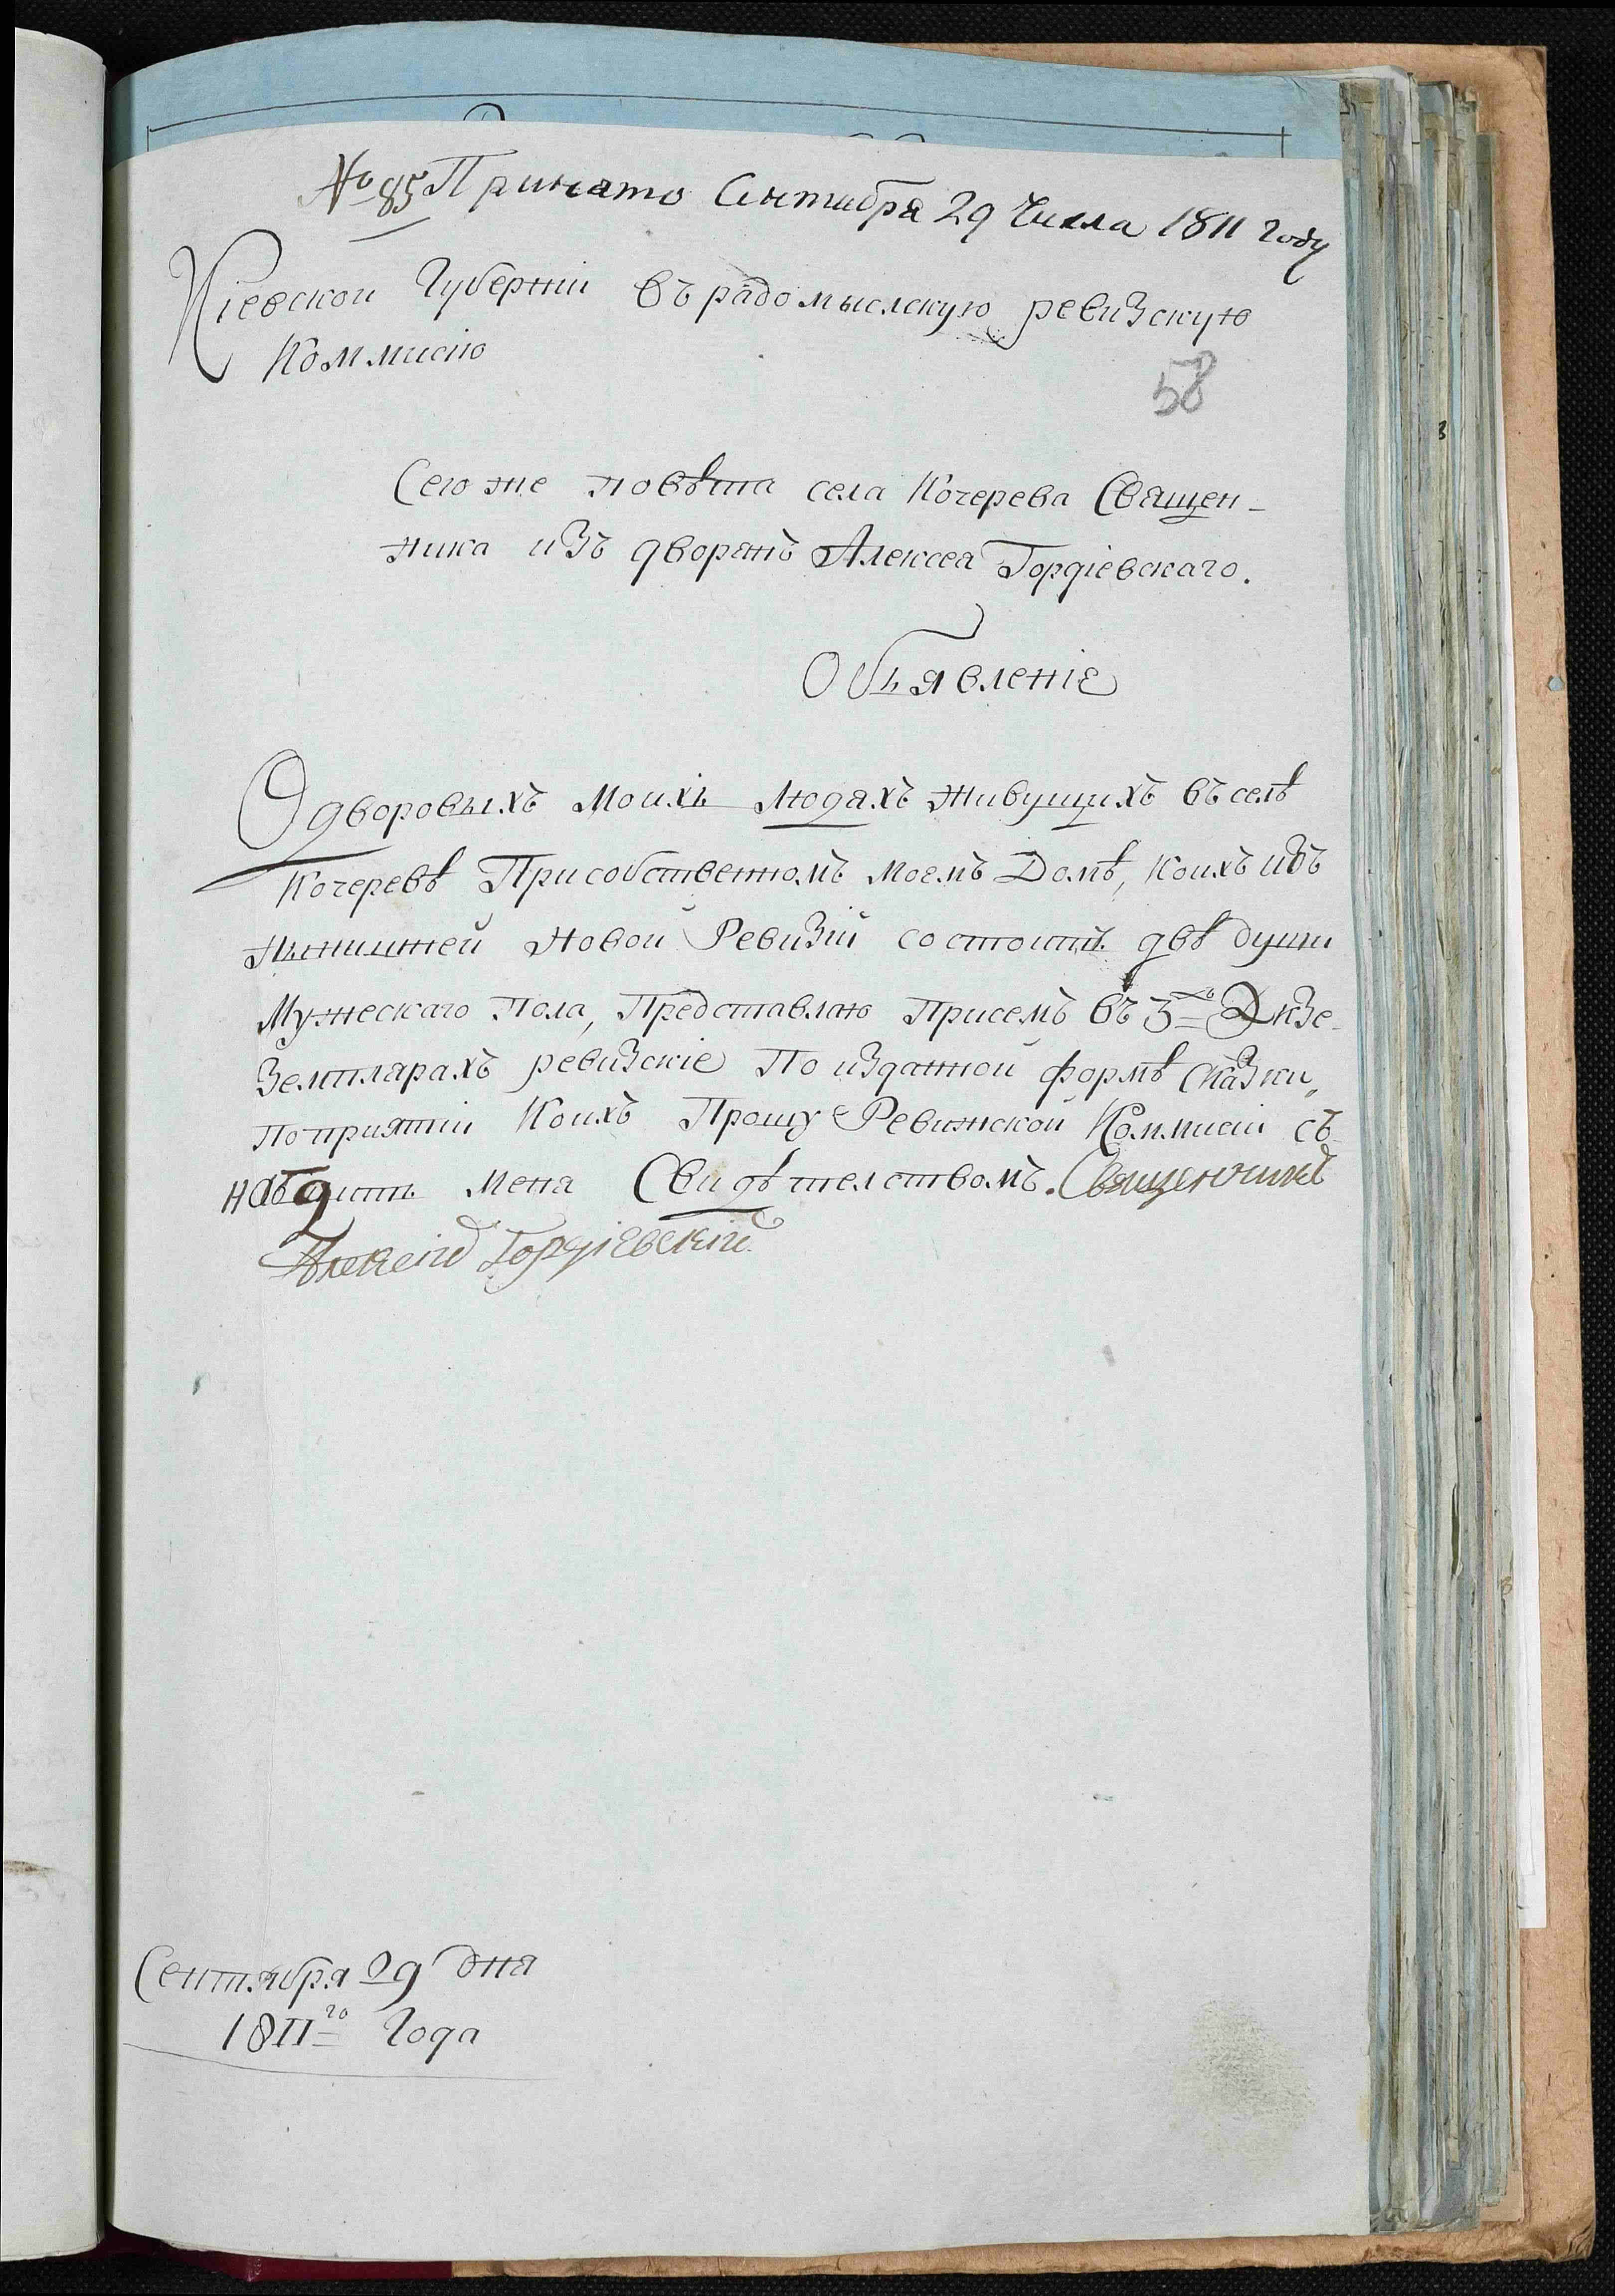 № 85 Принято Сентибра 29 Числа 1811 году
Кіевской Губерніи въ радомыслскую ревизскую
Коммисію
58
Сего же повѣта села Кочерева Священ-
ника изъ дворянъ Алексея Гордіевскаго.
Объявленіе
О дворовыхъ Моихъ Людяхъ живущихъ въ селѣ
Кочеревѣ При собственномъ моемъ Домѣ, Коихъ изъ
нынишней Новой Ревизіи состоитъ двѣ души
Мужескаго Пола, Представляю Присемъ въ 3хъ Экзе-
земплярахъ ревизскіе По изданной формѣ Сказки,,
По пріятіи Коихъ Прошу Ревижской Коммисіи съ
набдить Меня Свидѣтелствомъ. Священникъ
Алексій Гордіевскій
Сентября 29 дня
1811го Года